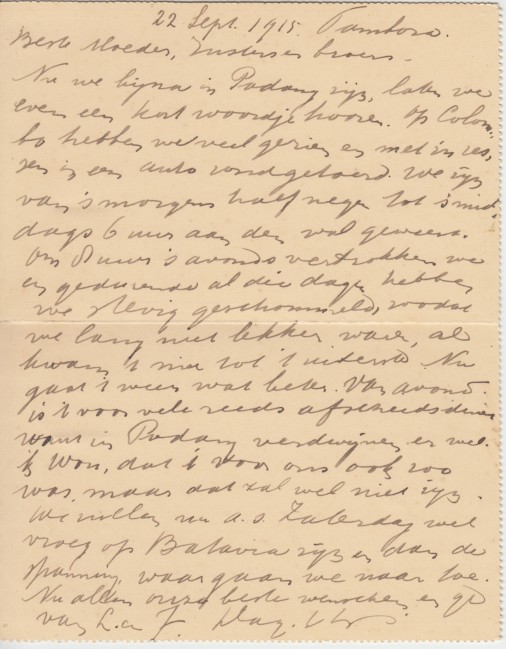 22 Sept. 1915. Tambora.
Beste Moeder, Zusters en broers.
Nu we bijna in Padang zijn, laten we
even een kort woordje hooren. Op Colom-
bo hebben we veel gezien en met
in een auto rondgetoerd. We zijn
van 's morgens half negen tot 's mid-
dags 6 uur aan den wal geweest.
Om 8 uur 's avonds vertrokken we
en gedurende al die dagen hebben
we stevig geschommeld, zoodat
we lang niet lekker waren, al
kwam 't niet tot 't uiterste. Nu
gaat 't weer wat beter. Van avond
is 't voor vele reeds afscheidsdiner
want in Padang verdwijnen er wel.
Ik wou, dat 't voor ons ook zoo
was, maar dat zal wel niet zijn.
We zullen nu a.s. Zaterdag wel
vroeg op Batavia zijn en dan de
spanning, waar gaan we naar toe.
Nu allen onze beste wenschen en
van L. en J. Dag.